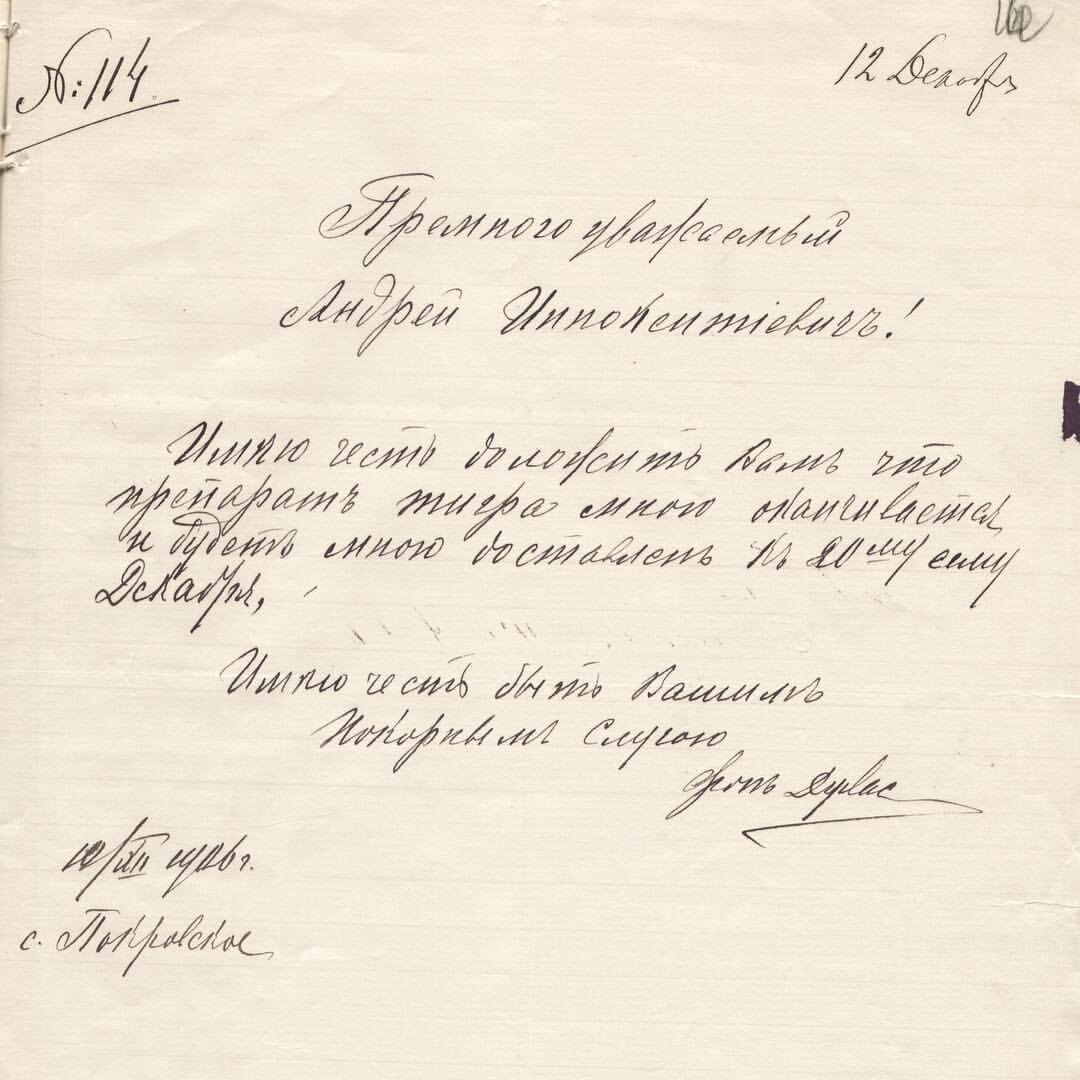 №: 114.
12 Декабр
Премного уважаемый
Андрей Иннокентіевичъ!
Имѣю честь доложить Вамъ что
препаратъ тигра мною оканчивается
и будетъ мною доставленъ къ 20му сему
Декабря,
Имѣю честь быть Вашимъ
Покорнымъ Слугою
фонъ
/XII 1906 г.
с. Покровское